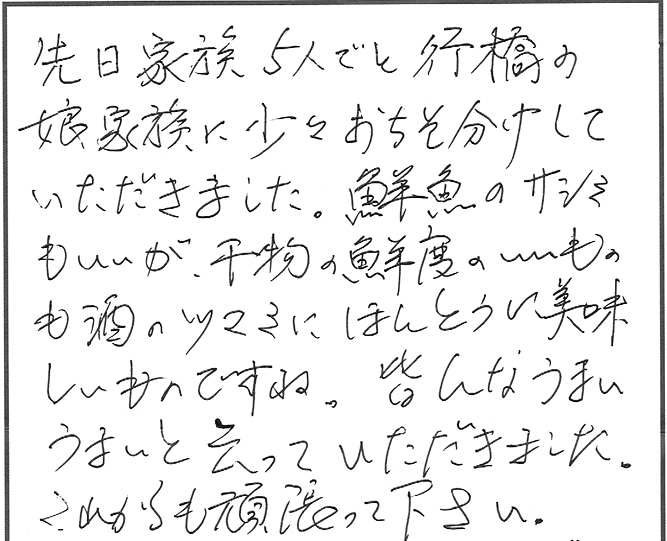 先日家族5人でと行橋の
娘家族に少々おちそ分けして
いただきました。鮮魚のサシミ
もいいが、干物の鮮度のいいもの
も酒のツマミにほんとうに美味
しいものですね。皆んなうまい
うまいと云っていただきました。
これからも頑張って下さい。